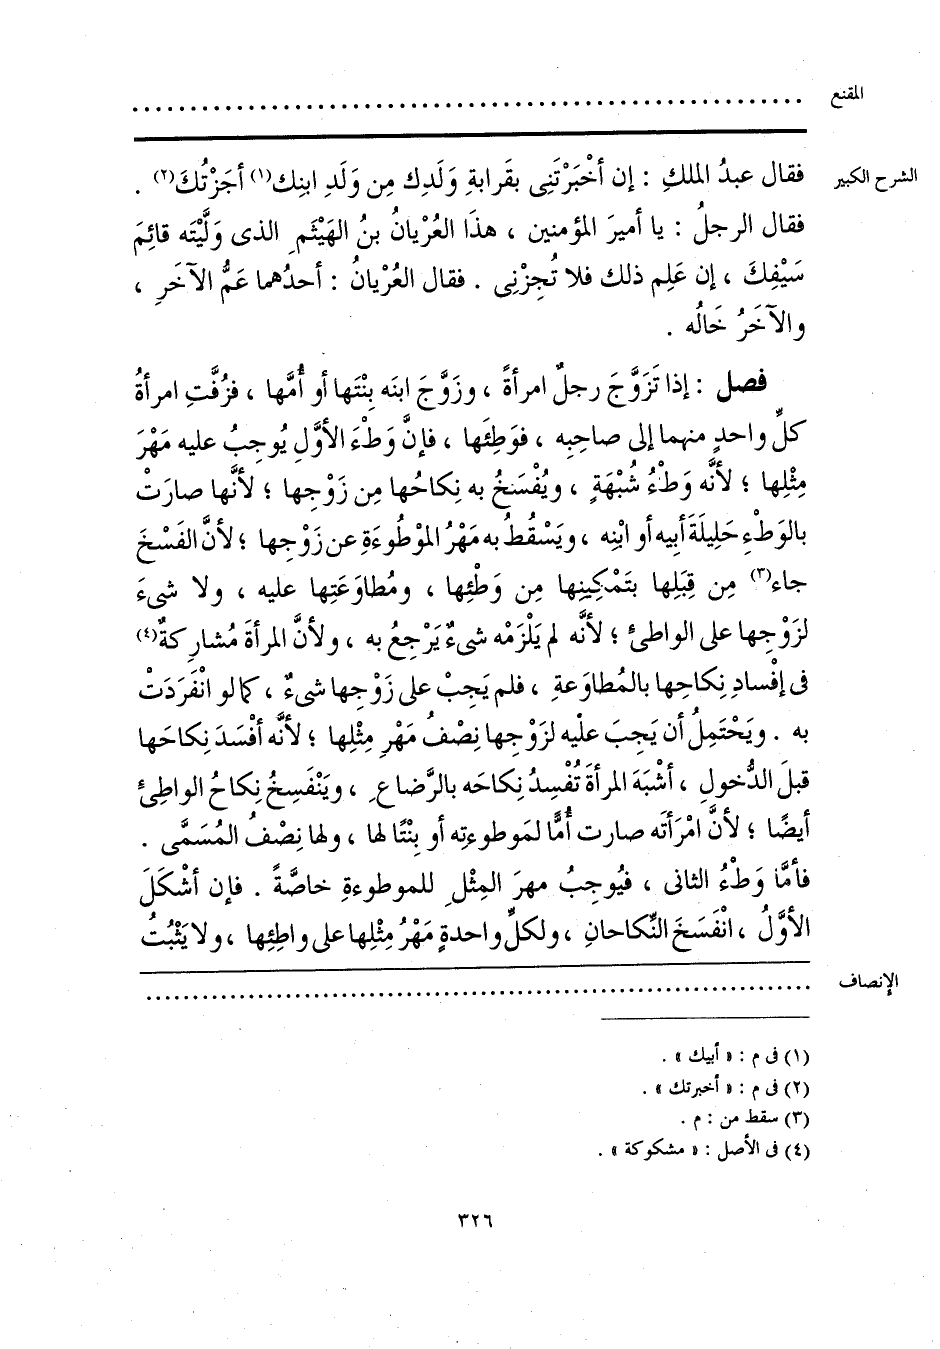 المقنع
................................................................
الشرح الكبير
فقال عبدُ الملكِ : إن أخْبَرْتَنِى بقَرابةِ وَلَدِك مِن وَلَدِ ابنِك(١) أجَزْتُكَ(٢) .
فقال الرجلُ : يا أميرَ المؤمنين ، هذَا العُرْيانُ بنُ الهَيْثَمِ الذى وَلَّيْتَه قائِمَ
سَيْفِكَ ، إن عَلِم ذلك فلا تُجِزْنِى . فقال العُرْيانُ : أحدُهما عَمُّ الآخَرِ ،
والآخَرُ خَالُه .
فصل : إذا تَزَوَّجَ رجلٌ امرأةً ، وزَوَّجَ ابنَه بِنْتَها أو أُمَّها ، فزُفَّتِ امرأةُ
كلِّ واحدٍ منهما إلى صاحِبِه ، فوَطِئَها ، فإنَّ وَطْءَ الأوَّلِ يُوجِبُ عليه مَهْرَ
مِثْلِها ؛ لأنَّه وَطْءُ شُبْهَةٍ ، ويُفْسَخُ به نِكاحُها مِن زَوْجِها ؛ لأنَّها صارَتْ
بالوَطْءِ حَلِيلَةَ أبِيه أو ابْنِه ، ويَسْقُطُ به مَهْرُ المَوْطُوءَةِ عن زَوْجِها ؛ لأنَّ الفَسْخَ
جاء(٣) مِن قِبَلِها بتَمْكِينِها مِن وَطْئِها ، ومُطاوَعَتِها عليه ، ولا شىءَ
لزَوْجِها على الواطئُ ؛ لأنَّه لم يَلْزَمْه شىءٌ يَرْجِعُ به ، ولأنَّ المرأةَ مُشارِكةٌ(٤)
فى إفْسادِ نِكاحِها بالمُطاوَعةِ ، فلم يَجِبْ على زَوْجِها شىءٌ ، كما لو انْفَرَدَتْ
به . ويَحْتَمِلُ أن يَجِبَ علْيه لزَوْجِها نِصْفُ مَهْرِ مِثْلِها ؛ لأنَّه أفْسَدَ نِكاحَها
قبلَ الدُّخولِ ، أشْبَهَ المرأةَ تُفْسِدُ نِكاحَه بالرَّضاعِ ، ويَنْفَسِخُ نِكاحُ الواطِئُ
أيضًا ؛ لأنَّ امْرَأتَه صارت أُمًّا لمَوطوءتِه أو بِنْتًا لها ، ولها نِصْفُ المُسَمَّى .
فأمَّا وَطْءُ الثانى ، فيُوجِبُ مهرَ المِثْلِ للموطوءةِ خاصَّةً . فإن أشْكَلَ
الأوَّلُ ، انْفَسَخَ النِّكاحانِ ، ولكلِّ واحدةٍ مَهْرُ مِثْلِها على واطِئِها ، ولا يَثْبُتُ
الإنصاف
................................................................
(١) فى م : « أبيك » .
(٢) فى م : « أخبرتك » .
(٣) سقط من : م .
(٤) فى الأصل : « مشكوكة » .
٣٢٦